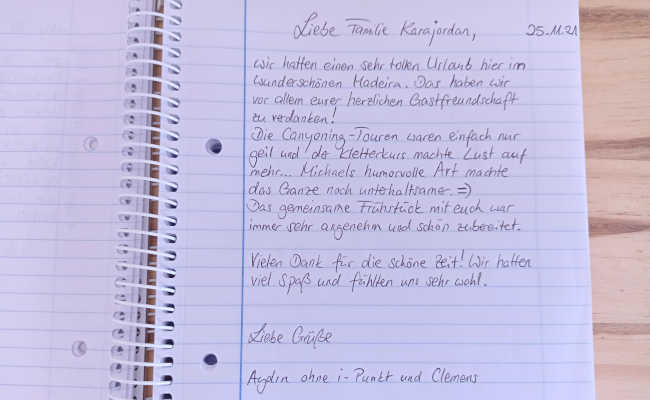 Liebe Familie Karajordan, 25.11.21
wir hatten einen sehr tollen Urlaub hier im
wunderschönen Madeira. Das haben wir
vor allem eurer herzlichen Gastfreundschaft
zu verdanken!
Die Canyoning-Touren waren einfach nur
geil und der Kletterkurs machte Lust auf
mehr... Michaels humorvolle Art machte
das Ganze noch unterhaltsamer. =)
Das gemeinsame Frühstück mit euch war
immer sehr angenehm und schön zubereitet.
Vielen Dank für die schöne Zeit! Wir hatten
viel Spaß und fühlten uns sehr wohl.
Liebe Grüße
Aydin ohne i-Punkt und Clemens